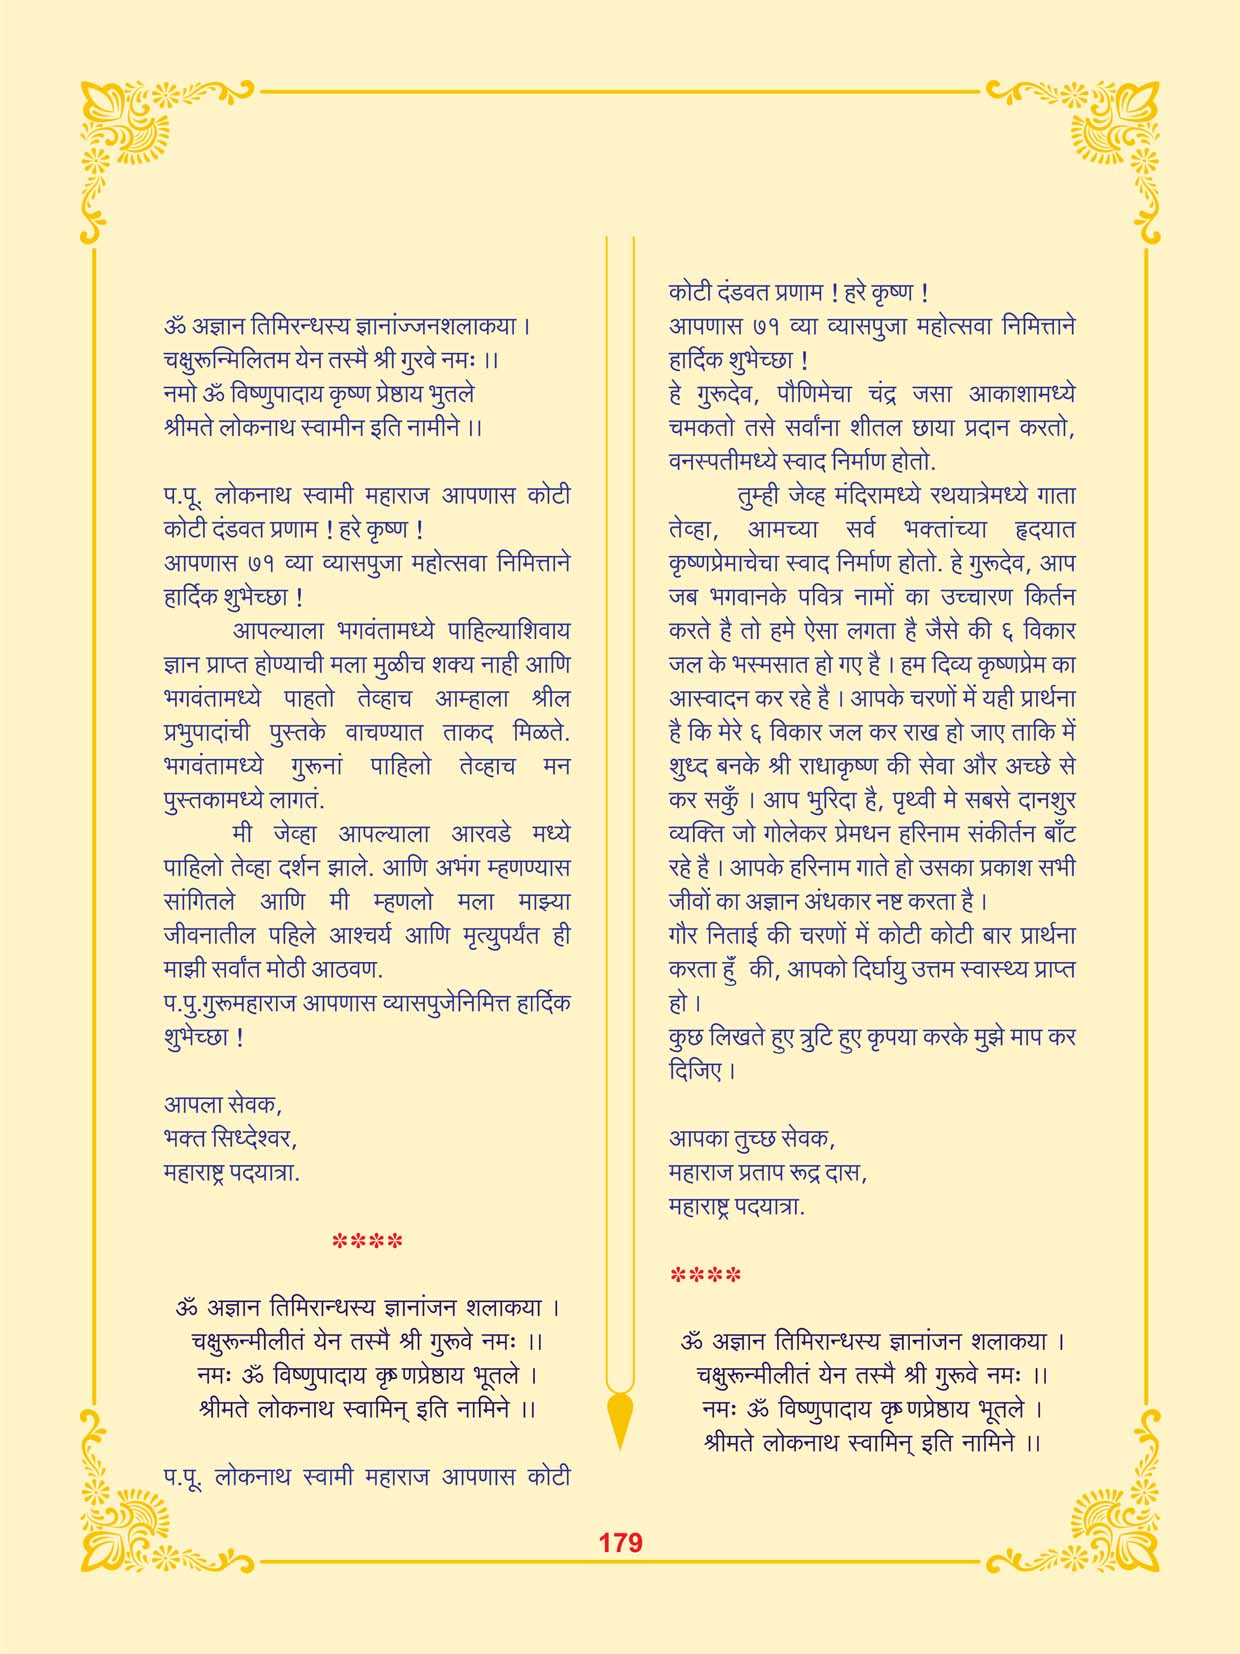 ॐ अज्ञान तिमिरन्धस्य ज्ञानांज्जनशलाकया ।
चक्षुरून्मिलितम येन तस्मै श्री गुरवे नमः ।।
नमो ॐ विष्णुपादाय कृष्ण प्रेष्ठाय भुतले
श्रीमते लोकनाथ स्वामीन इति नामीने ।।
प.पू. लोकनाथ स्वामी महाराज आपणास कोटी
कोटी दंडवत प्रणाम ! हरे कृष्ण !
आपणास ७१ व्या व्यासपुजा महोत्सवा निमित्ताने
हार्दिक शुभेच्छा !
आपल्याला भगवंतामध्ये पाहिल्याशिवाय
ज्ञान प्राप्त होण्याची मला मुळीच शक्य नाही आणि
भगवंतामध्ये पाहतो तेव्हाच आम्हाला श्रील
प्रभुपादांची पुस्तके वाचण्यात ताकद मिळते.
भगवंतामध्ये गुरूनां पाहिलो तेव्हाच मन
पुस्तकामध्ये लागतं.
मी जेव्हा आपल्याला आरवडे मध्ये
पाहिलो तेव्हा दर्शन झाले. आणि अभंग म्हणण्यास
सांगितले आणि मी म्हणलो मला माझ्या
जीवनातील पहिले आश्चर्य आणि मृत्युपर्यंत ही
माझी सर्वांत मोठी आठवण.
प.पु.गुरूमहाराज आपणास व्यासपुजेनिमित्त हार्दिक
शुभेच्छा !
आपला सेवक,
भक्त सिध्देश्वर,
महाराष्ट्र पदयात्रा.
****
ॐ अज्ञान तिमिरान्धस्य ज्ञानांजन शलाकया ।
चक्षुरून्मीलीतं येन तस्मै श्री गुरूवे नमः ।।
नमः ॐ विष्णुपादाय कृष्णप्रेष्ठाय भूतले ।
श्रीमते लोकनाथ स्वामिन् इति नामिने ।।
प.पू. लोकनाथ स्वामी महाराज आपणास कोटी
कोटी दंडवत प्रणाम ! हरे कृष्ण !
आपणास ७१ व्या व्यासपुजा महोत्सवा निमित्ताने
हार्दिक शुभेच्छा !
हे गुरूदेव, पौणिमेचा चंद्र जसा आकाशामध्ये
चमकतो तसे सर्वांना शीतल छाया प्रदान करतो,
वनस्पतीमध्ये स्वाद निर्माण होतो.
तुम्ही जेव्ह मंदिरामध्ये रथयात्रेमध्ये गाता
तेव्हा, आमच्या सर्व भक्तांच्या हृदयात
कृष्णप्रेमाचेचा स्वाद निर्माण होतो. हे गुरूदेव, आप
जब भगवानके पवित्र नामों का उच्चारण किर्तन
करते है तो हमे ऐसा लगता है जैसे की ६ विकार
जल के भस्मसात हो गए है । हम दिव्य कृष्णप्रेम का
आस्वादन कर रहे है । आपके चरणों में यही प्रार्थना
है कि मेरे ६ विकार जल कर राख हो जाए ताकि में
शुध्द बनके श्री राधाकृष्ण की सेवा और अच्छे से
कर सकुँ । आप भुरिदा है, पृथ्वी मे सबसे दानशुर
व्यक्ति जो गोलेकर प्रेमधन हरिनाम संकीर्तन बाँट
रहे है । आपके हरिनाम गाते हो उसका प्रकाश सभी
जीवों का अज्ञान अंधकार नष्ट करता है ।
गौर निताई की चरणों में कोटी कोटी बार प्रार्थना
करता हुँ की, आपको दिर्घायु उत्तम स्वास्थ्य प्राप्त
हो ।
कुछ लिखते हुए त्रुटि हुए कृपया करके मुझे माप कर
दिजिए ।
आपका तुच्छ सेवक,
महाराज प्रताप रूद्र दास,
महाराष्ट्र पदयात्रा.
****
ॐ अज्ञान तिमिरान्धस्य ज्ञानांजन शलाकया ।
चक्षुरून्मीलीतं येन तस्मै श्री गुरूवे नमः ।।
नमः ॐ विष्णुपादाय कृष्णप्रेष्ठाय भूतले ।
श्रीमते लोकनाथ स्वामिन् इति नामिने ।।
179